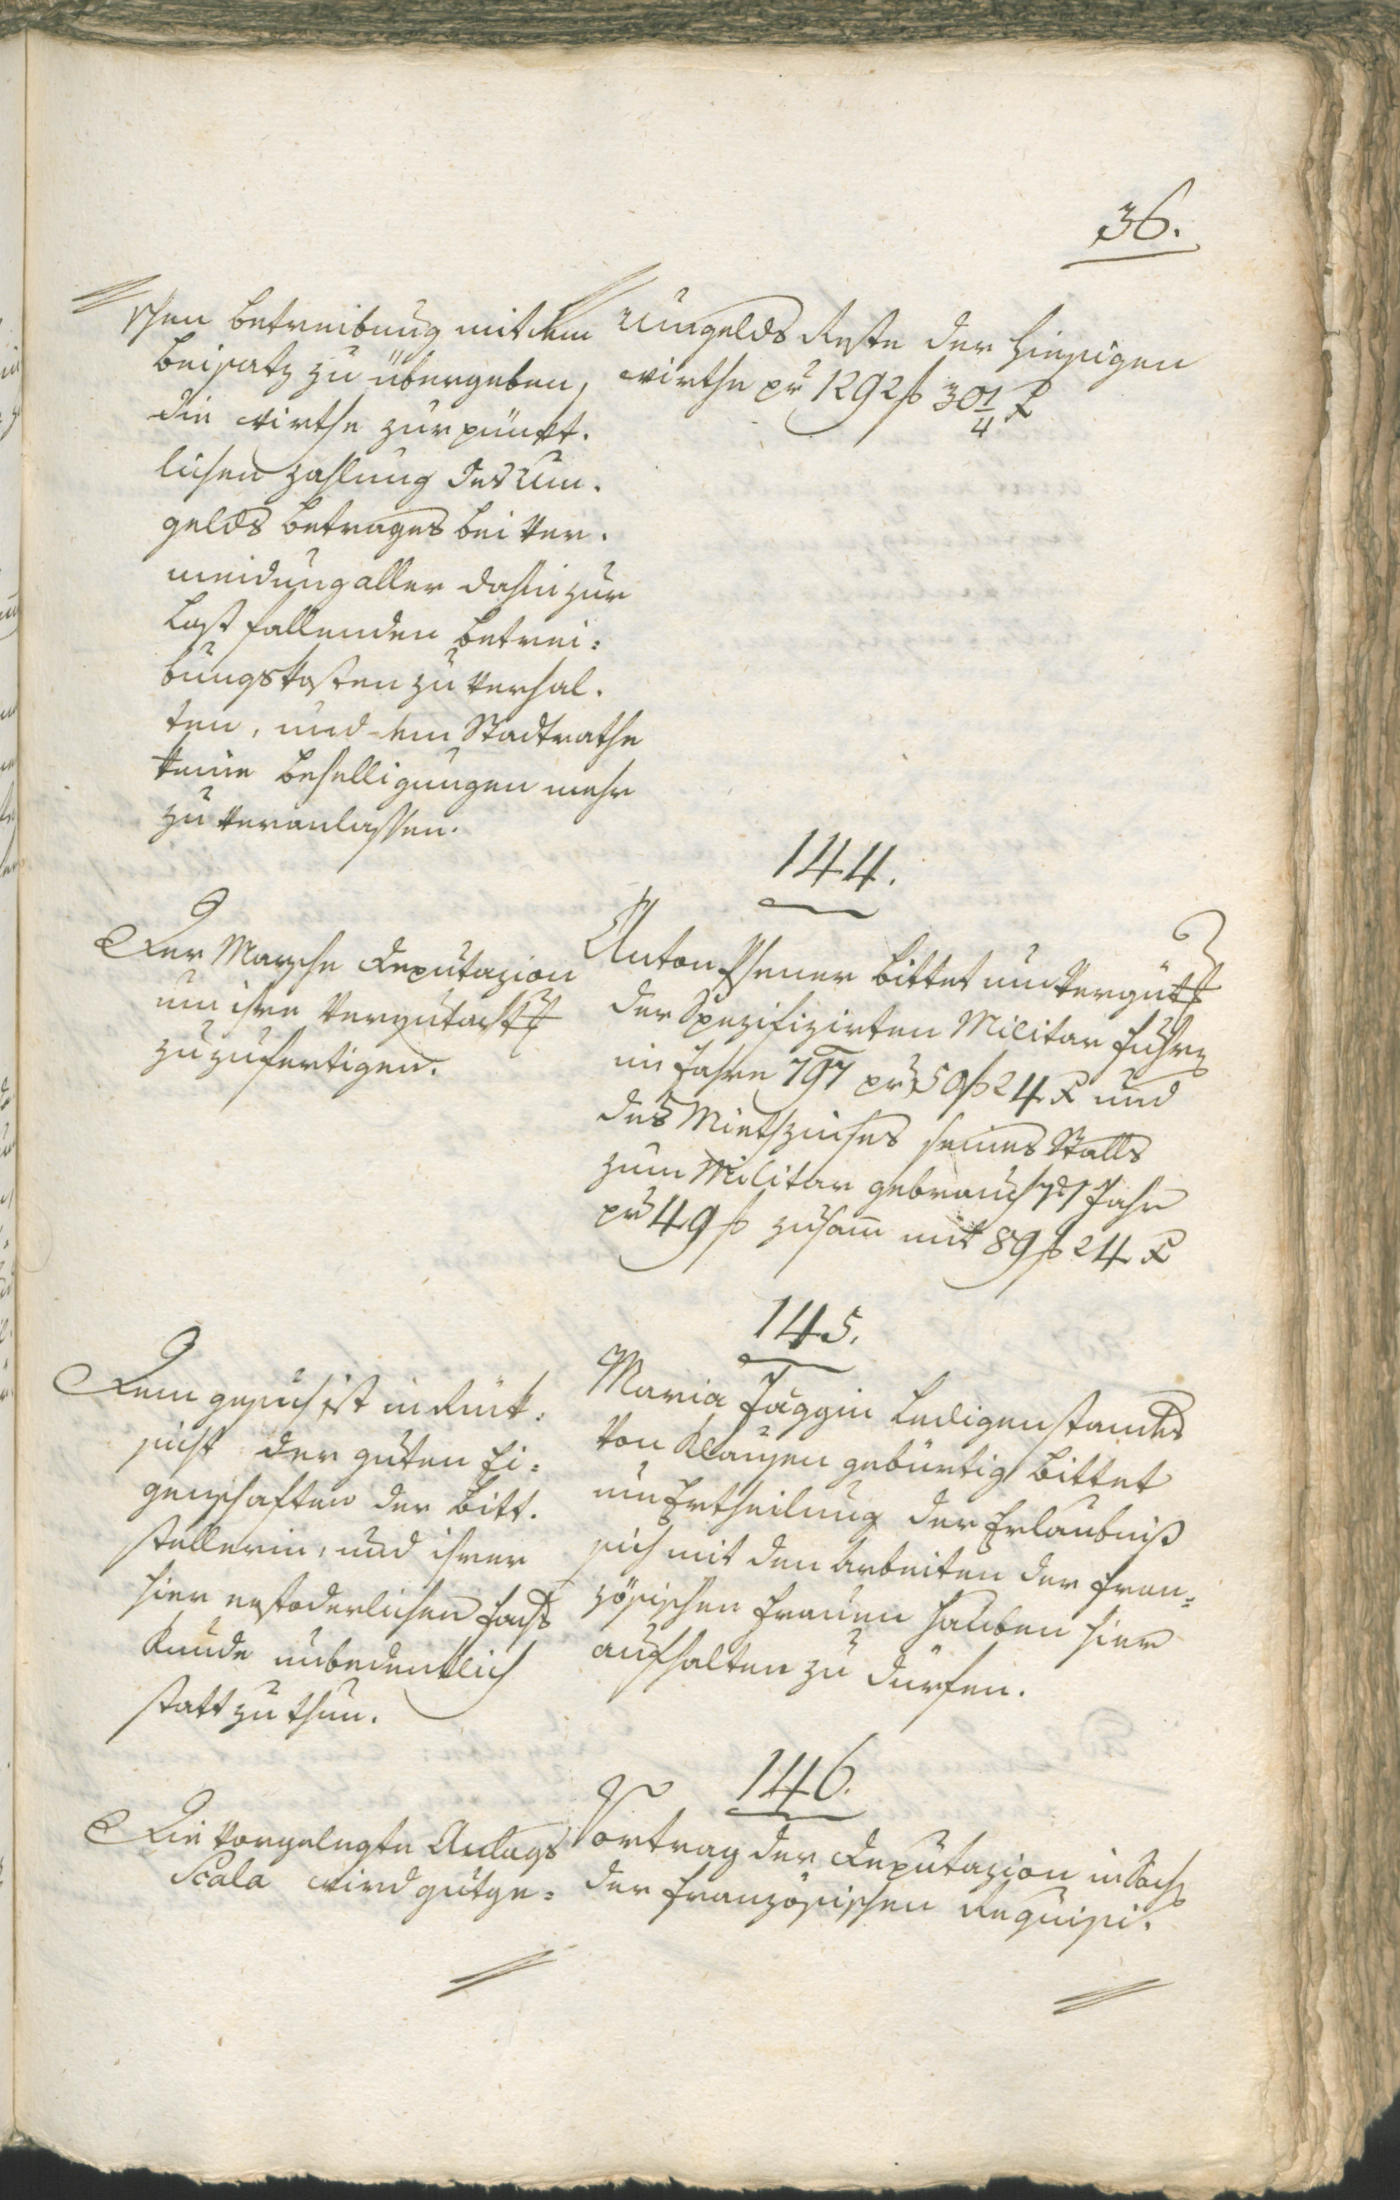 36.
schen Betreibung mit dem
Beisatz zu übergeben,
die Wirthe zur pünkt-
lichen Zahlung des Um-
gelds Betrages bei Ver-
meidung aller dahin zur
Last fallenden Betrei=
bungskosten zu verhal-
ten, und dem Stadtrathe
keine Behelligungen mehr
zu veranlassen.
Umgelds Reste der hiesigen
Wirthe pr 1292 f 30 1/4 x
144.
Der Marsche Deputazion
um ihre Vergutacht
zuzufertigen.
Anton bittet um Vergüt
der Spezifizirten Militar Fuhr
im Jahre 797 pr 50 f 24 x und
des Miethzinses seines Stalls
zum Militar gebrauch Jahr
pr 49 f zusamm mit 89 f 24 x
145.
Dem gesuch ist in Rük=
sicht der guten Ei=
genschaften der Bitt-
stellerin, und ihrer
hier erfoderlichen Fachs
Kunde unbedenklich
statt zu thun.
Maria Jäggin Ledigen standes
von Klausen gebürtig bittet
um Ertheilung der Erlaubniß
sich mit den Arbeiten der fran=
zösischen Frauen Hauben hier
aufhalten zu dürfen.
146.
Die vorgelegte Anlags
Scala wird gutge=
Vortrag der Deputazion in Sach
der französischen Requisi-